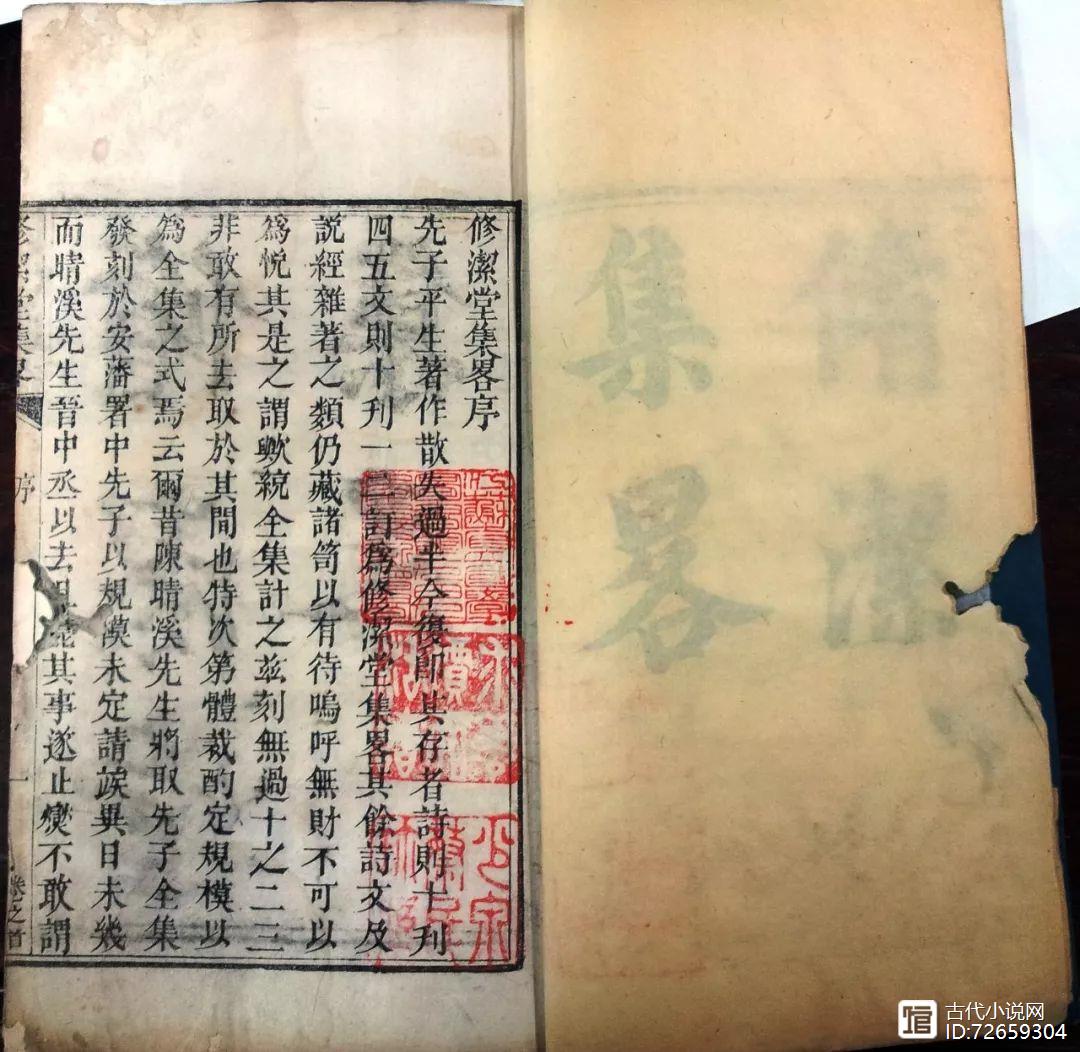 修潔堂集畧序
先子平生著作散失過半今復即其存者詩則十刊
四五文則十刊一二訂爲修潔堂集畧其餘詩文及
説經雜著之類仍藏諸笥以有待嗚呼無財不可以
爲悅其是之謂歟統全集計之玆刻無過十之二三
非敢有所去取於其間也特次第體裁酌定規模以
爲全集之式焉云爾昔陳晴溪先生將取先子全集
發刻於安藩署中先子以規漠未定請誒異日未幾
而晴溪先生晉中丞以去 其事遂止爕不敢謂
修潔堂集畧
序
一
卷之首
集畧
古代小说网
ID:72659304